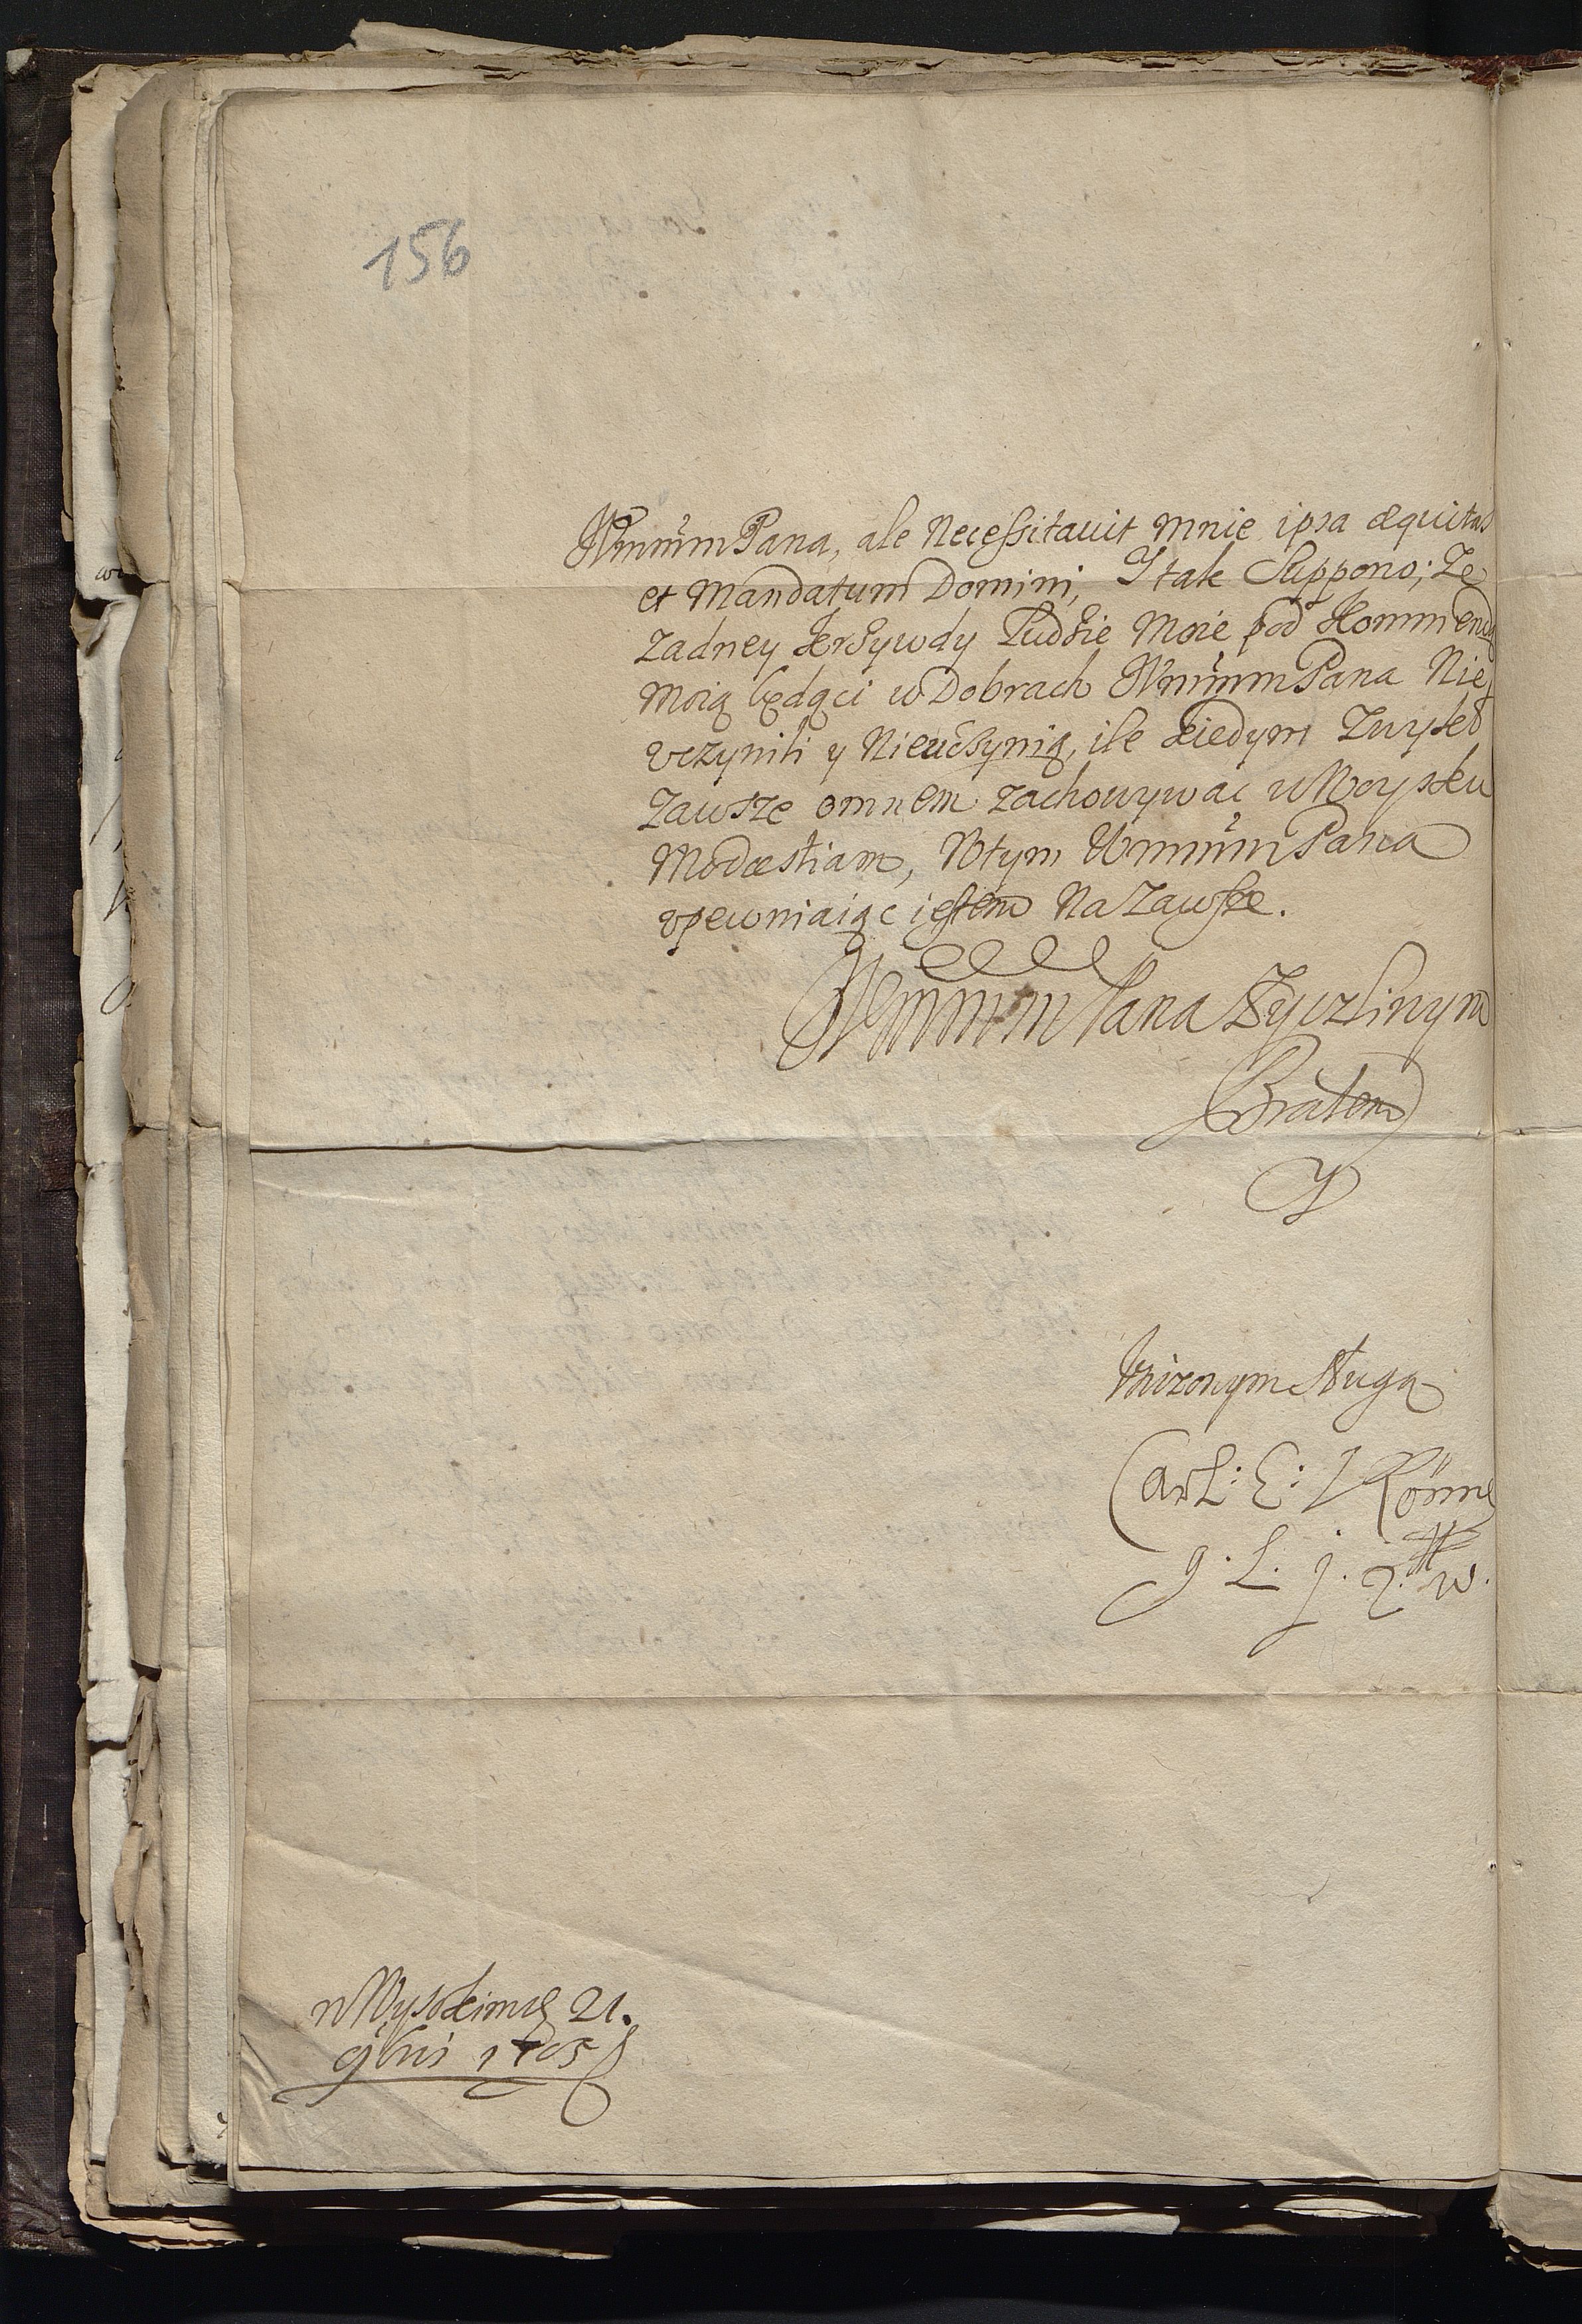 156
WmmmPana, ale Necessitauit Mnie ipsa æquitas
et Mandatum Domini, I tak Suppono; Ze
Zadney krzywdy Ludzie Moie pod Kommendą
Moią będąci w Dobrach WmmmPana Nie
vczynili y Nieuczynią, ile kiedym Zwykł
Zawsze omnem zachowywac w Woysku
Modæstiam, Wtym WmmmPana
vpewniaiąc iestem Na Zawsze.
WmmmPana Zyczliwym
Bratem
Y
Vnizonym sługą
Carl: E: Rönne
g. L. j.
w Wysokimię 21.
9bris 1705